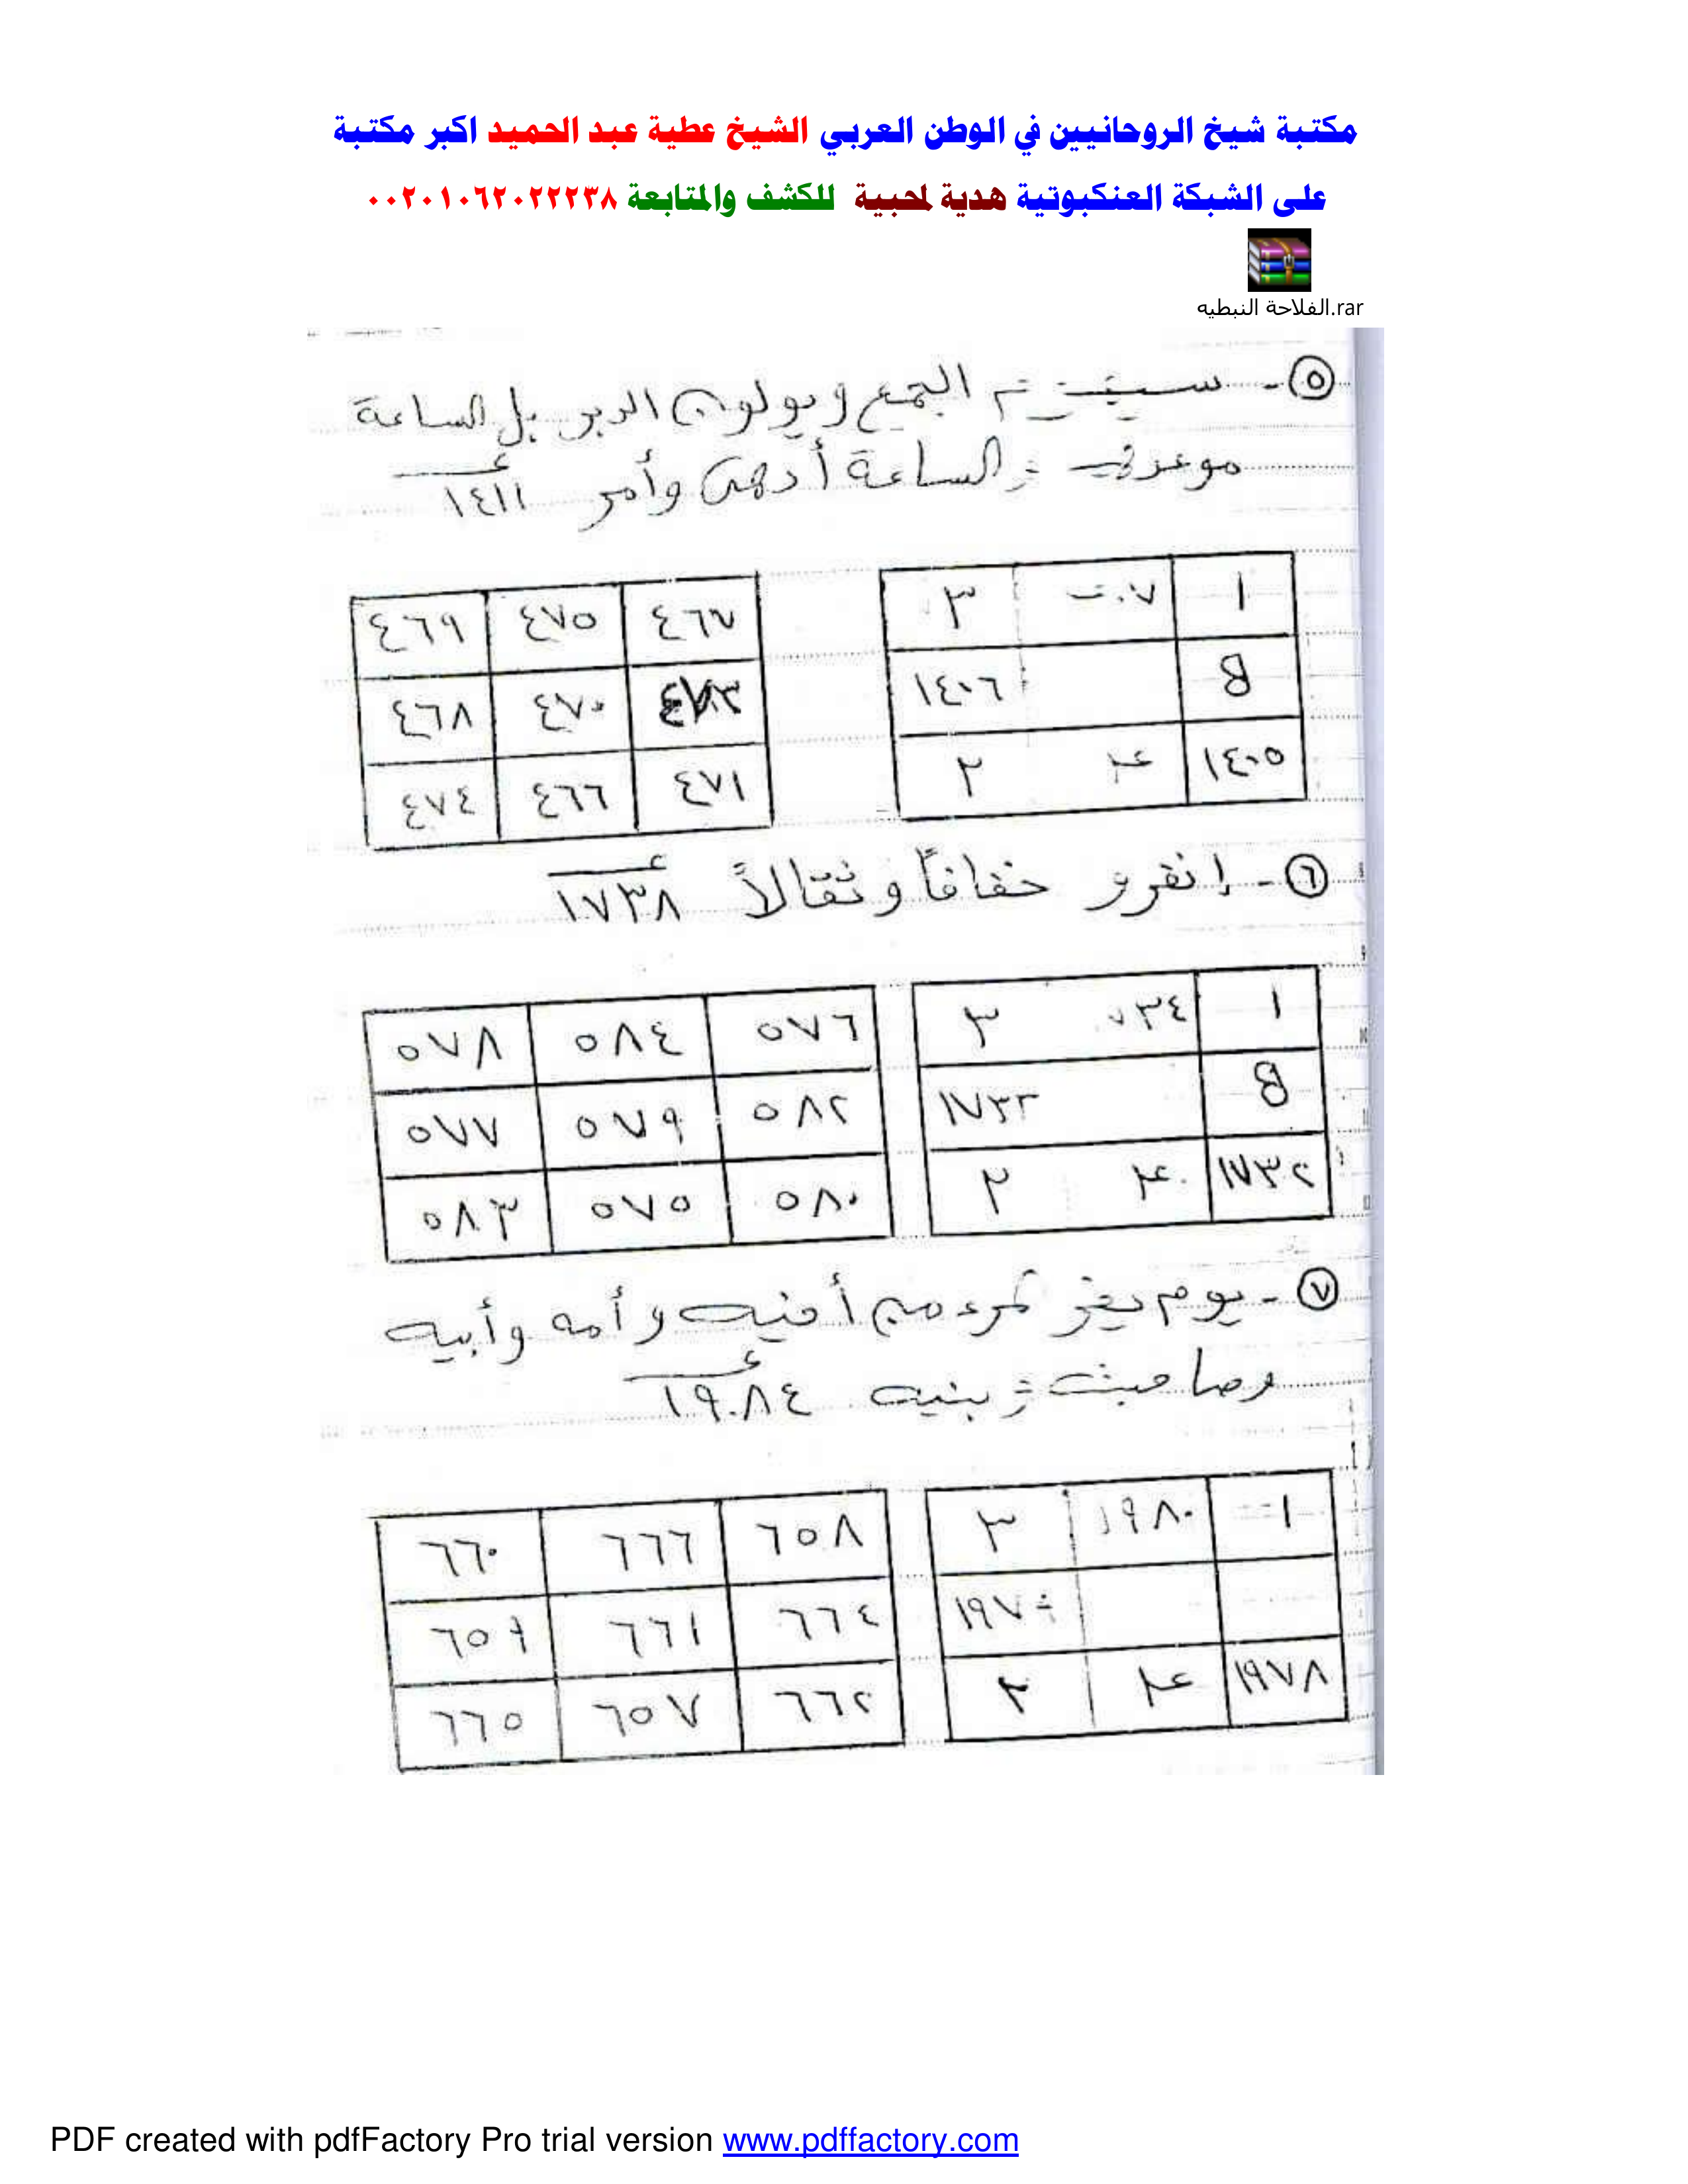 مكتبة شيخ الروحانيين في الوطن العربي الشيخ عطية عبد الحميد اكبر مكتبة
على الشبكة العنكبوتية هدية لمحبيه للكشف والمتابعة ٠٠٢٠١٠٦٢٠٢٢٢٣٨
الفلاحة النبطيه.rar
٥- سيهزم الجمع ويولون الدبر بل الساعة
موعدهم والساعة أدهى وأمر ١٤١١
١ ٣
8 ١٤٠٦
١٤٠٥ ٤ ٢
٤٦٧ ٤٧٥ ٤٦٩
٤٧٣ ٤٧٠ ٤٦٨
٤٧١ ٤٦٦ ٤٧٤
٦- إنفرو خفافاً وثقالاً ١٧٣٨
١ ٣
8 ١٧٣٣
١٧٣٢ ٤ ٢
٥٧٦ ٥٨٤ ٥٧٨
٥٨٢ ٥٧٩ ٥٧٧
٥٨٠ ٥٧٥ ٥٨٣
٧- يوم يفر المرء من أخيه وأمه وأبيه
وصاحبته وبنيه ١٩٨٤
١ ١٩٨٠ ٣
١٩٧٨ ٤ ٢
٦٥٨ ٦٦٦ ٦٦٠
٦٦٤ ٦٦١ ٦٥٩
٦٦٢ ٦٥٧ ٦٦٥
PDF created with pdfFactory Pro trial version www.pdffactory.com